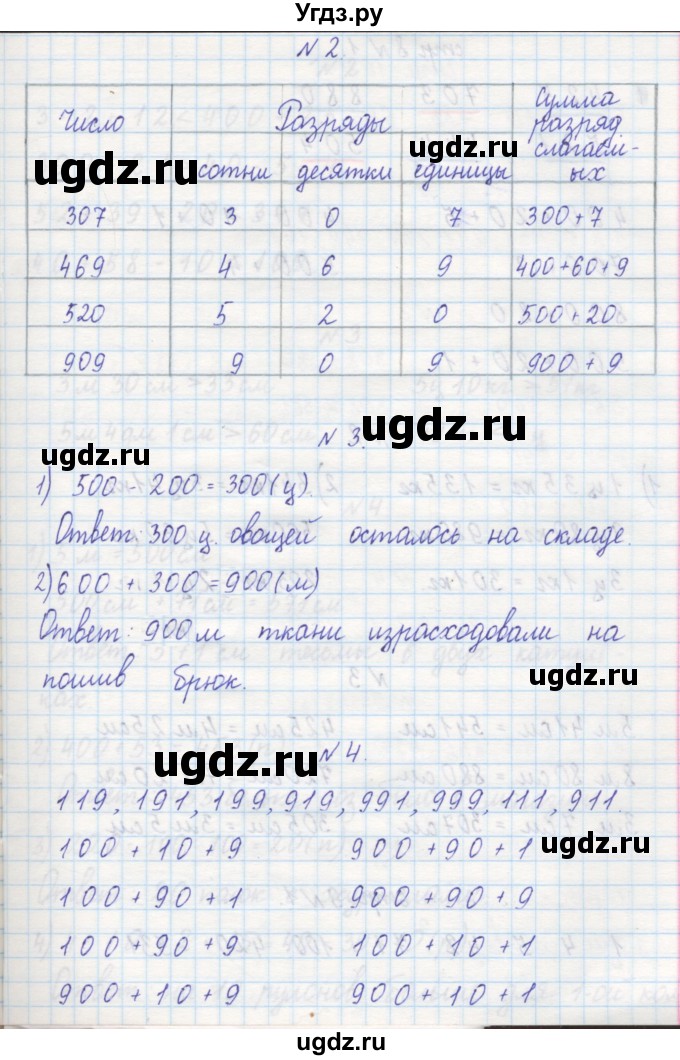 Угдз.ру
N 2.
Число Разряды Сумма
разряд
сотни десятки единицы слагаем-
ых
307 3 0 7 300+7
469 4 6 9 400+60+9
520 5 2 0 500+20
909 9 0 9 900+9
N 3.
1) 500 - 200 = 300 (ц).
Ответ: 300 ц. овощей осталось на складе.
2) 600 + 300 = 900 (м)
Ответ: 900 м ткани израсходовали на
пошив брюк.
N 4.
119, 191, 199, 919, 991, 999, 111, 911.
100 + 10 + 9 900 + 90 + 1
100 + 90 + 1 900 + 90 + 9
100 + 90 + 9 100 + 10 + 1
900 + 10 + 9 900 + 10 + 1
ugdz.ru
ugdz.ru
ugdz.ru
ugdz.ru
ugdz.ru
ugdz.ru
ugdz.ru
ugdz.ru
ugdz.ru
ugdz.ru